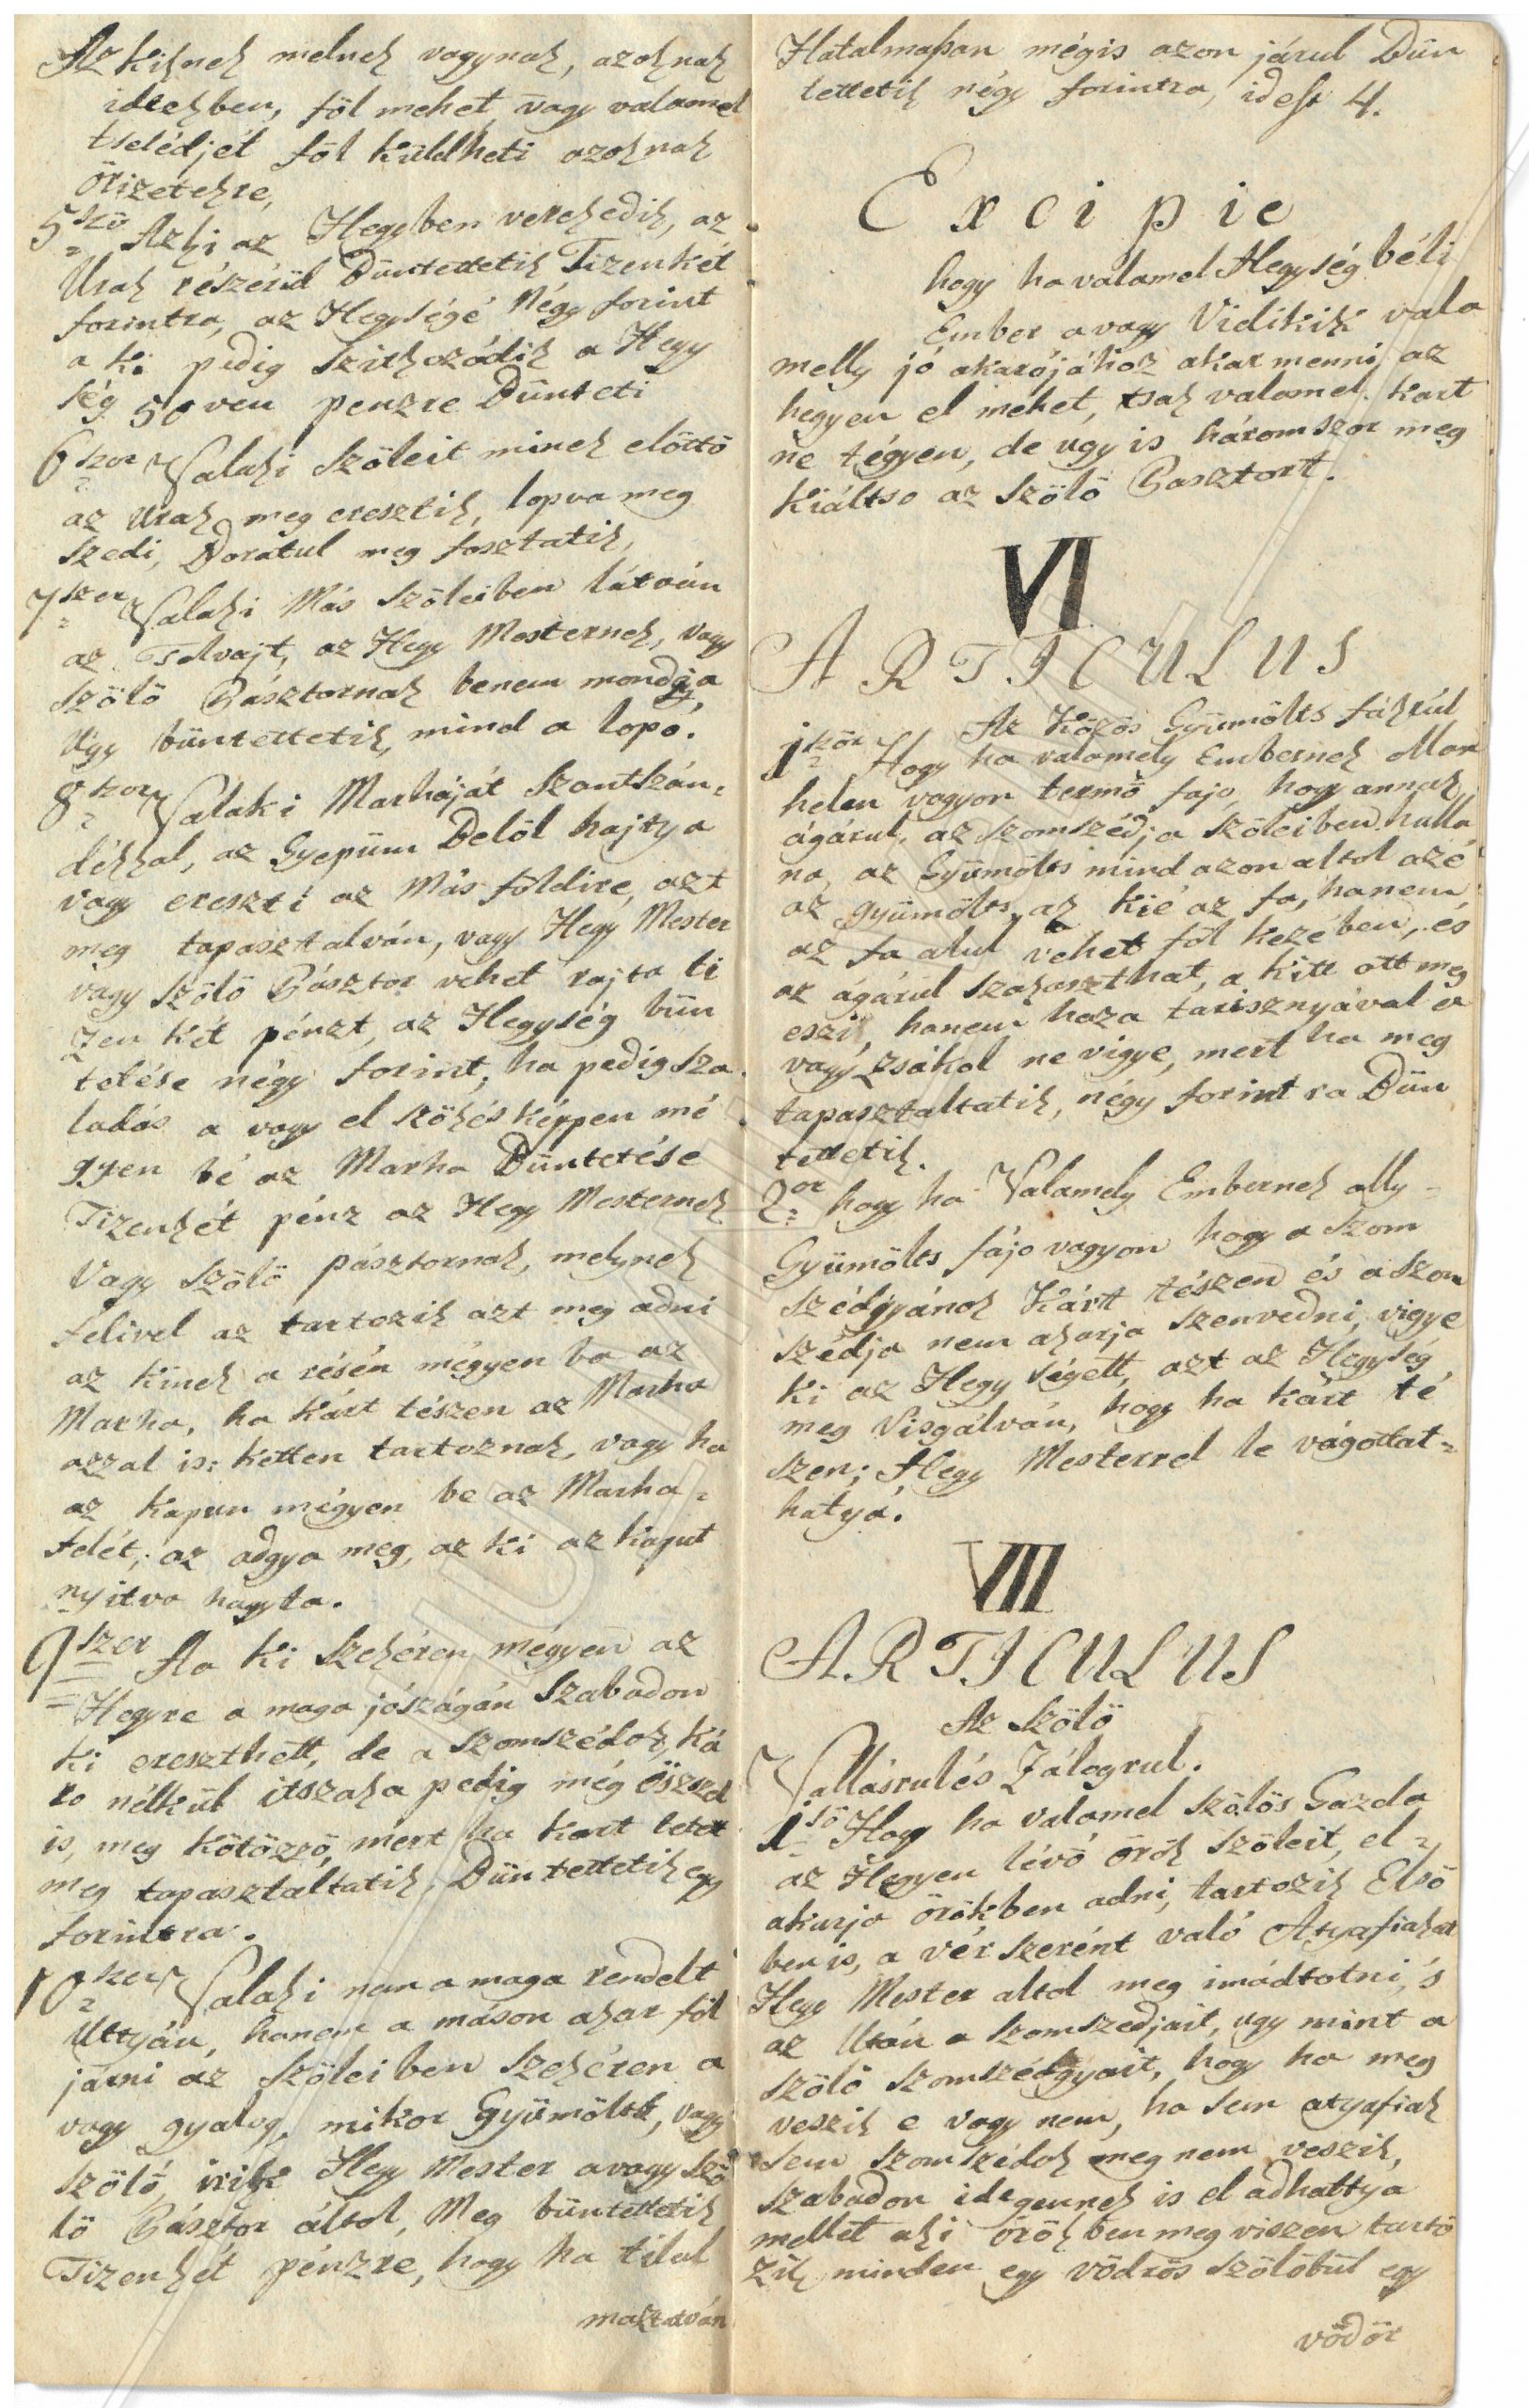 Az kiknek melnek vagynak, azoknak
idejekben, föl mehet, vagy valamel
tselédjét föl küldheti azoknak
örizetekre,
5ször Azki az Hegyben verekedik, az
Urak részérül Büntettetik Tizenkét
forintra, az Hegységé Négy forint
a ki pedig Szitkozódik a Hegy
ség 50ven penzre Bünteti
6szor Valaki Szöleit minek elöttö
az Urak meg eresztik, lopva meg
szedi, Borátul meg fosztatik,
7szer Valaki Más Szöleiben látván
az Tolvajt, az Hegy Mesternek, vagy
szölö Pásztornak benem mondgya,
Ugy büntettetik, mind a lopó.
8szor Valaki Marháját Szántszán-
dékkal, az Gyepüün Belöl hajtya
vagy ereszti az Más földire, azt
meg tapasztalván, vagy Hegy Mester
vagy Szölö Pásztor vehet rajta ti
zen két pénzt, az Hegység bün
tetése négy forint, ha pedig sza
ladás a vagy el szökés képpen mé
gyen bé az Marha Büntetése
Tizenkét pénz az Hegy Mesternek
Vagy Szölö pásztornak, melynek
felivel az tartozik azt meg adni
az kinek a résén mégyen ba az
Marha, ha kárt tészen az Marha
azzal is: ketten tartoznak, vagy ha
az kapun mégyen be az Marha-
felét; az adgya meg, az ki az kaput
nyitva hagyta.
9szer Aa ki Szekéren mégyen az
Hegyre a maga jószágán Szabadon
ki ereszthett, de a Szomszédok, ká
ra nélkül itszaka pedig még öszszel
is, meg kötözzö, mert ha kart tetet
meg tapasztaltatik, Büntettetik egy
forintra.
10szer Valaki nem a maga rendelt
Uttyán, hanem a máson akar föl
járni az Szöleiben Szekéren a
vagy gyalog, mikor Gyümölts, vagy
szöló irik Hegy Mester avagy Szö
lö Pásztor által, Meg büntettetik
Tizenkét pénzre, hogy ha tilal
maztatván
Hatalmaſsan mégis azon járul Bün
tettetik négy forintra, idest 4.
Excipie
hogy ha valamel Hegység béli
Ember avagy Vidikik vala
melly jó akarójához akar menni az
hegyen el mehet, tsak valamel kart
ne tégyen, de ugy is háromszor meg
kiáltsa az Szölö Pasztort.
VI
ARTICULUS
Az Közös Gyümölts fákrúl
1ször Hogy ha valamely Embernek Ollyan
helen vagyon termö fája, hogy annak
ágárul, az Szomszéd; a Szöleiben hulla
na, az Gyümölts mind azon altal azé
az gyümölts, az kié az fa, hanem
az fa alul vehet föl kezében, és
az ágárul szakaszthat, a kitt ott meg
eszik, hanem haza tarisznyával a
vagy zsákal ne vigye, mert ha meg
tapasztaltatik, négy forintra Bün
tettetik.
2or hogy ha Valamely Embernek olly-
Gyümölts fája vagyon hogy a Szom
szédgyának kárt tészen és a Szom
szédja nem akarja szenvedni, vigye
ki az Hegy Ségett, azt az Hegység
meg Visgálván, hogy ha kárt té
szen; Hegy Mesterrel le vágattat-
hatya.
VII
ARTICULUS
Az Szölö
Vallásrul és Zálogrul.
1sö Hogy ha valamel Szölös Gazda
az Hegyen lévö örök Szöleit, el-
akarja örökben adni, tartozik Elsö
ben is, a vér Szerént való Atyafiakat
Hegy Mester altal meg imádtotni, 's
az Után a Szomszedjait, ugy mint a
szölö Szomszédgyait, hogy ha meg
veszik e vagy nem, ha sem atyafiak
sem Szomszédok meg nem veszik,
szabadon idegennek is el adhattya
mellet aki örökben meg viszen tarto
zik minden egy vödrös Szölöbül egy
vödör